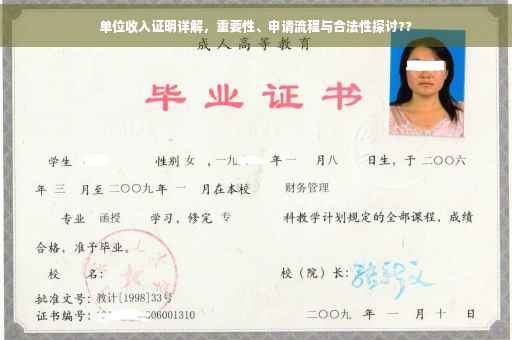 单位收入证明详解，重要性、申请流程与合法性探讨??
成人高等教育
毕业证书
学生 性别 女 ，一九 年一 月八 日生，于二〇〇六
年 三 月至二〇〇九年 一 月在本校 财务管理
专业 函授 学习，修完 专 科教学计划规定的全部课程，成绩
合格，准予毕业。
校 名： 校（院）长：
批准文号：教计[1998]33号
证书编号： 06001310 二〇〇九 年 一 月 十 日